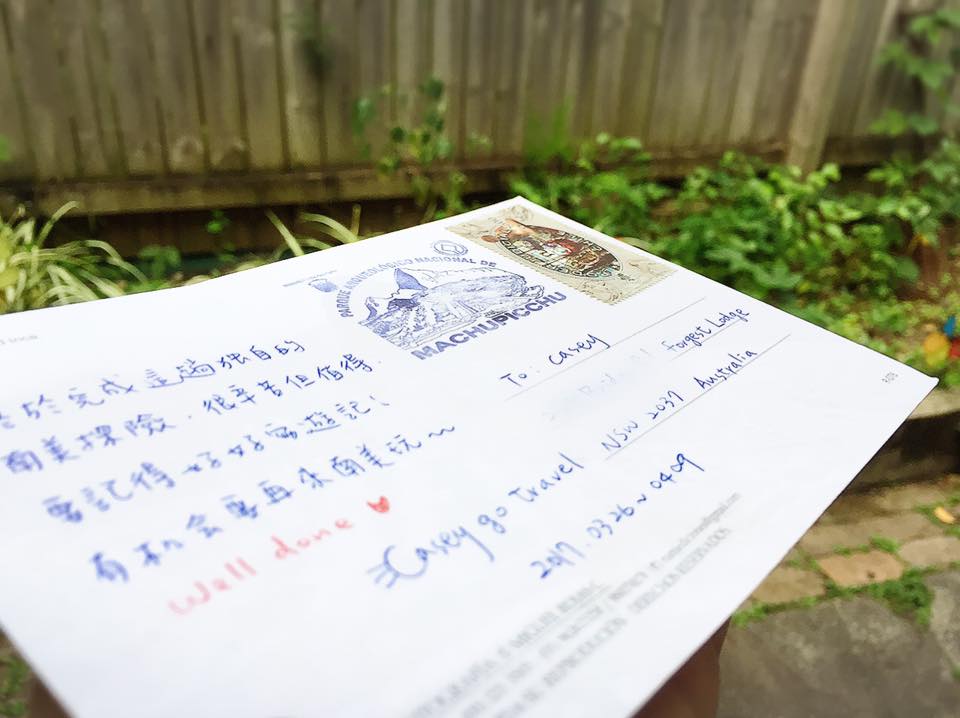 終於完成這趟独自的
南美探險，很辛苦但值得，
要記得好好寫遊記！
有机会要再來南美玩～
Well done
PARQUE ARQUEOLÓGICO NACIONAL DE
MACHUPICCHU
To: Casey
Forest Lodge
NSW 2037 Australia
Casey go travel
2017.03.26~0409
DERECHOS RESERVADOS